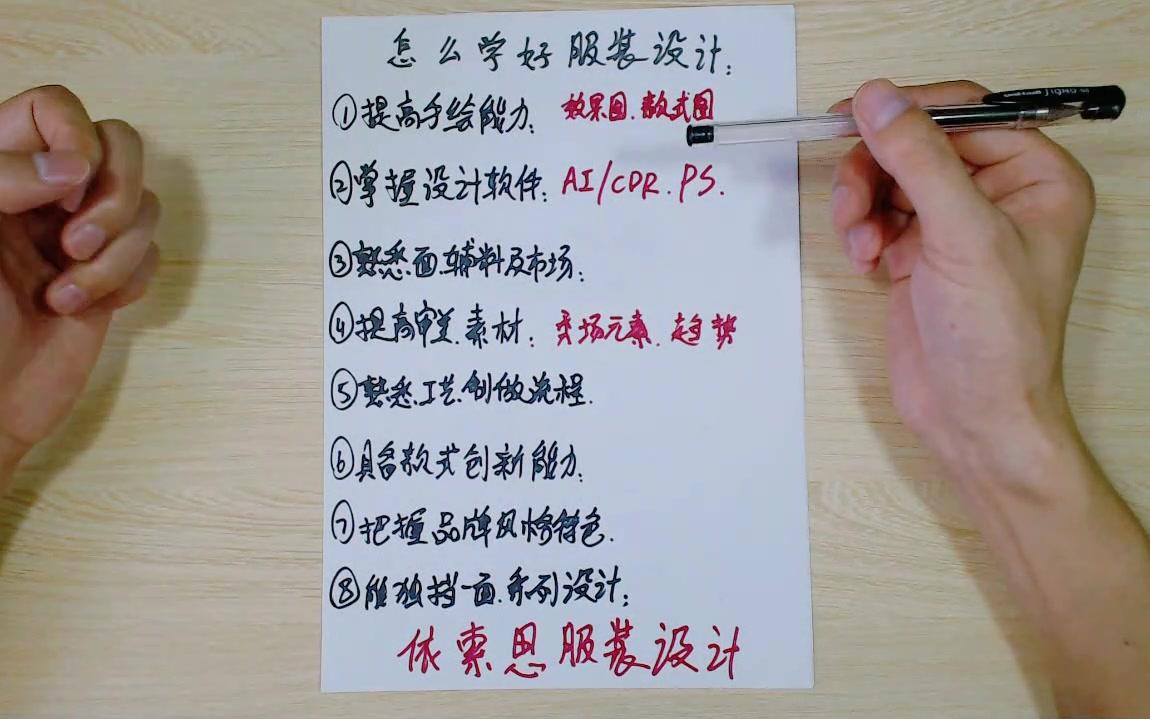 怎么学好服装设计:
①提高手绘能力: 效果图.款式图
②掌握设计软件: AI/CDR.PS.
③熟悉面.辅料及市场:
④提高审美.素材: 卖场元素.趋势
⑤熟悉.工艺.制做流程.
⑥具备款式创新能力:
⑦把握品牌风格特色.
⑧能独挡一面.系列设计:
依索思服装设计